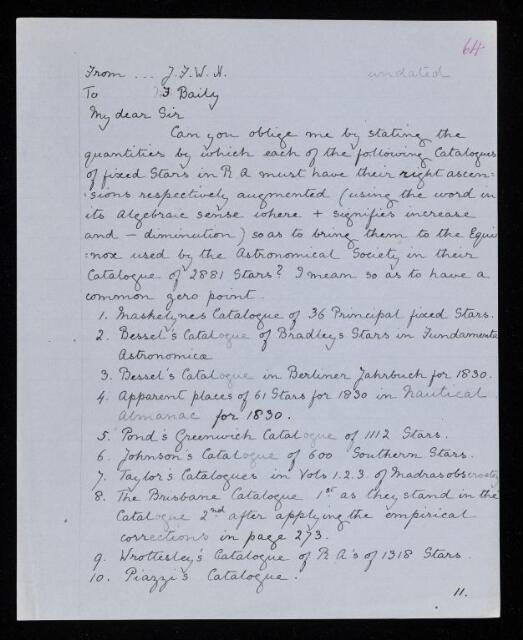 64
From ... J.F.W.H. undated
To F Baily
My dear Sir
Can you oblige me by stating the
quantities by which each of the following Catalogues
of fixed Stars in R A must have their right ascen=
:sions respectively augmented (using the word in
its Algebraic sense where + signifies increase
and - diminution) so as to bring them to the Equi
:nox used by the Astronomical Society in their
Catalogue of 2881 Stars? I mean so as to have a
common zero point.
1. Maskelynes Catalogue of 36 Principal fixed Stars.
2. Bessel's Catalogue of Bradleys Stars in Fundamenta
Astronomica
3. Bessel's Catalogue in Berliner Jahrbuch for 1830.
4. Apparent places of 61 Stars for 1830 in Nautical
Almanac for 1830.
5. Pond's Greenwich Catalogue of 1112 Stars.
6. Johnson's Catalogue of 600 Southern Stars.
7. Taylor's Catalogues in Vols 1.2.3. of Madras observatory
8. The Brisbane Catalogue 1st as they stand in the
Catalogue 2nd after applying the empirical
corrections in page 273.
9. Wrottesley's Catalogue of R A's of 1318 Stars.
10. Piazzi's Catalogue.
11.